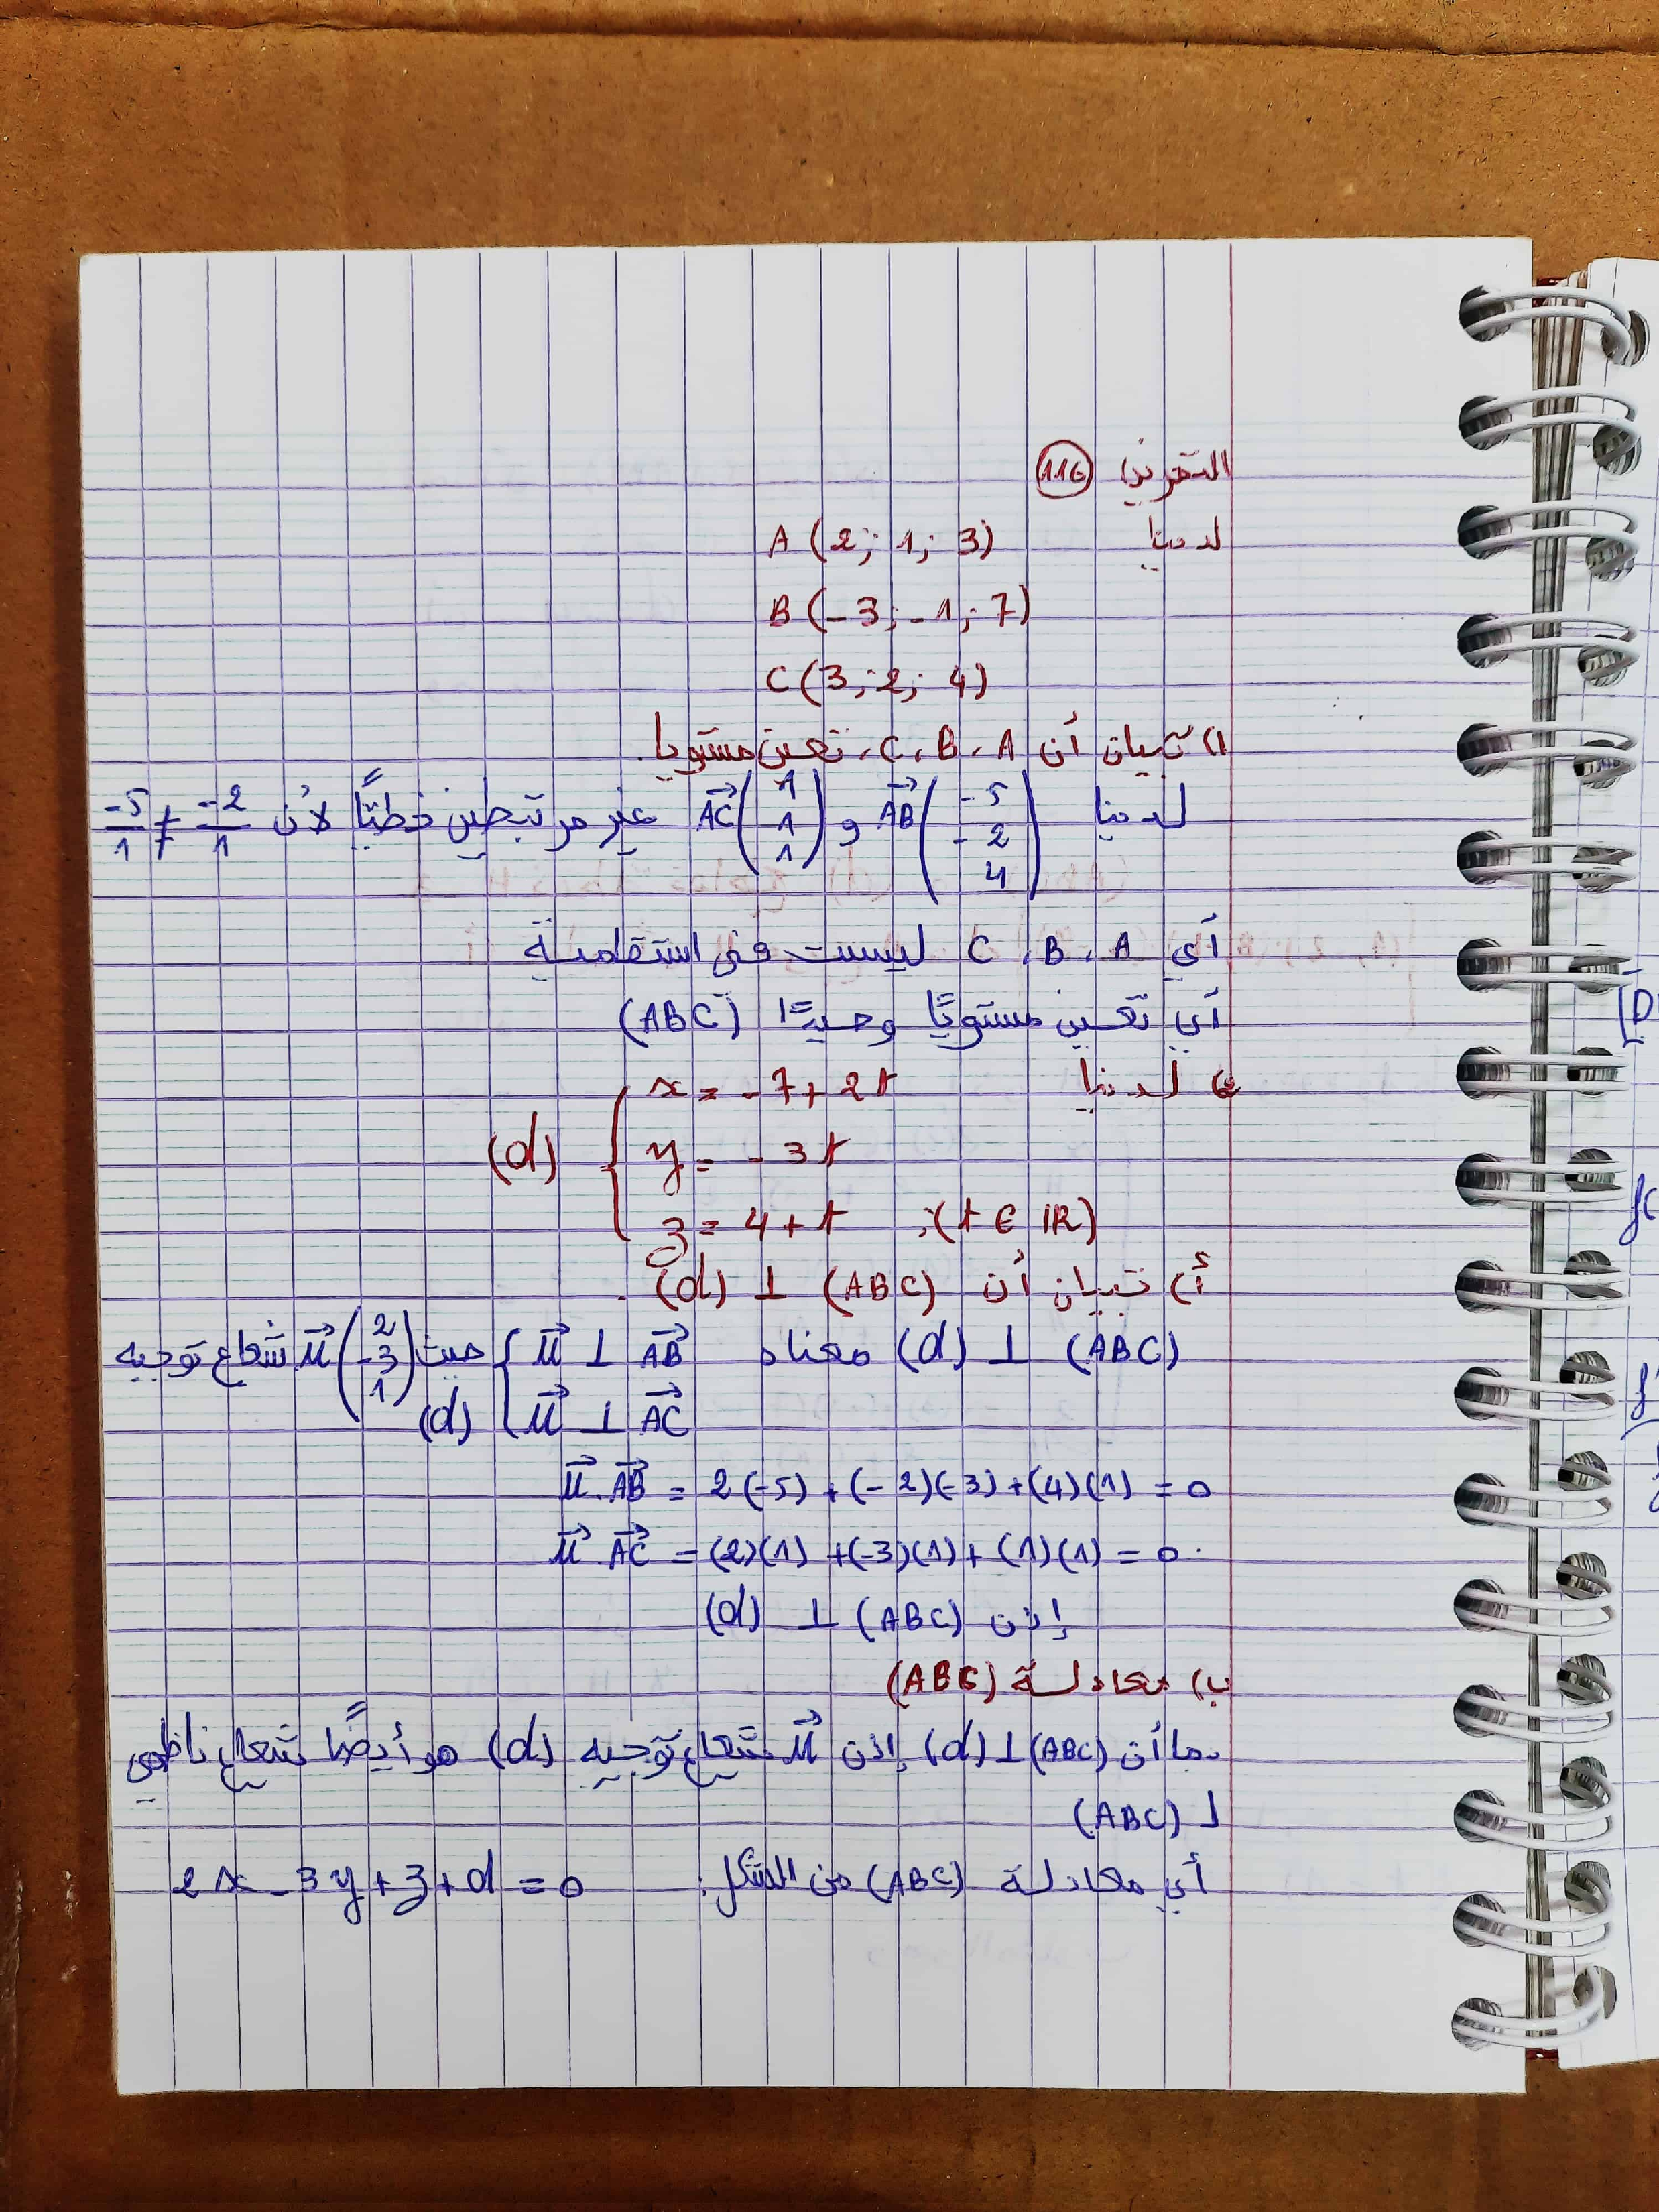 التمرين 116
لدينا A (2; 1; 3)
B (-3; -1; 7)
C (3; 2; 4)
1) تبيان أن A، B، C، تعين مستويا.
لدينا AB→(-5 -2 4) و AC→(1 1 1) غير مرتبطين خطيًا لأن -2/1 ≠ -5/1
أي A، B، C ليست في استقامية
أي تعين مستويًا وحيدًا (ABC)
2) لدينا
(d) { x = -7 + 2t
y = -3t
z = 4 + t ; (t ∈ IR)
أ) تبيان أن (d) ⊥ (ABC).
(d) ⊥ (ABC) معناه { u→ ⊥ AB→ حيث u→(2 -3 1) شعاع توجيه
u→ ⊥ AC→ (d)
u→.AB→ = 2(-5) + (-2)(-3) + (4)(1) = 0
u→.AC→ = (2)(1) + (-3)(1) + (1)(1) = 0.
إذن (d) ⊥ (ABC)
ب) معادلة (ABC)
بما أن (d) ⊥ (ABC) إذن u→ شعاع توجيه (d) هو أيضًا شعاع ناظمي
لـ (ABC)
أي معادلة (ABC) من الشكل: 2x - 3y + z + d = 0